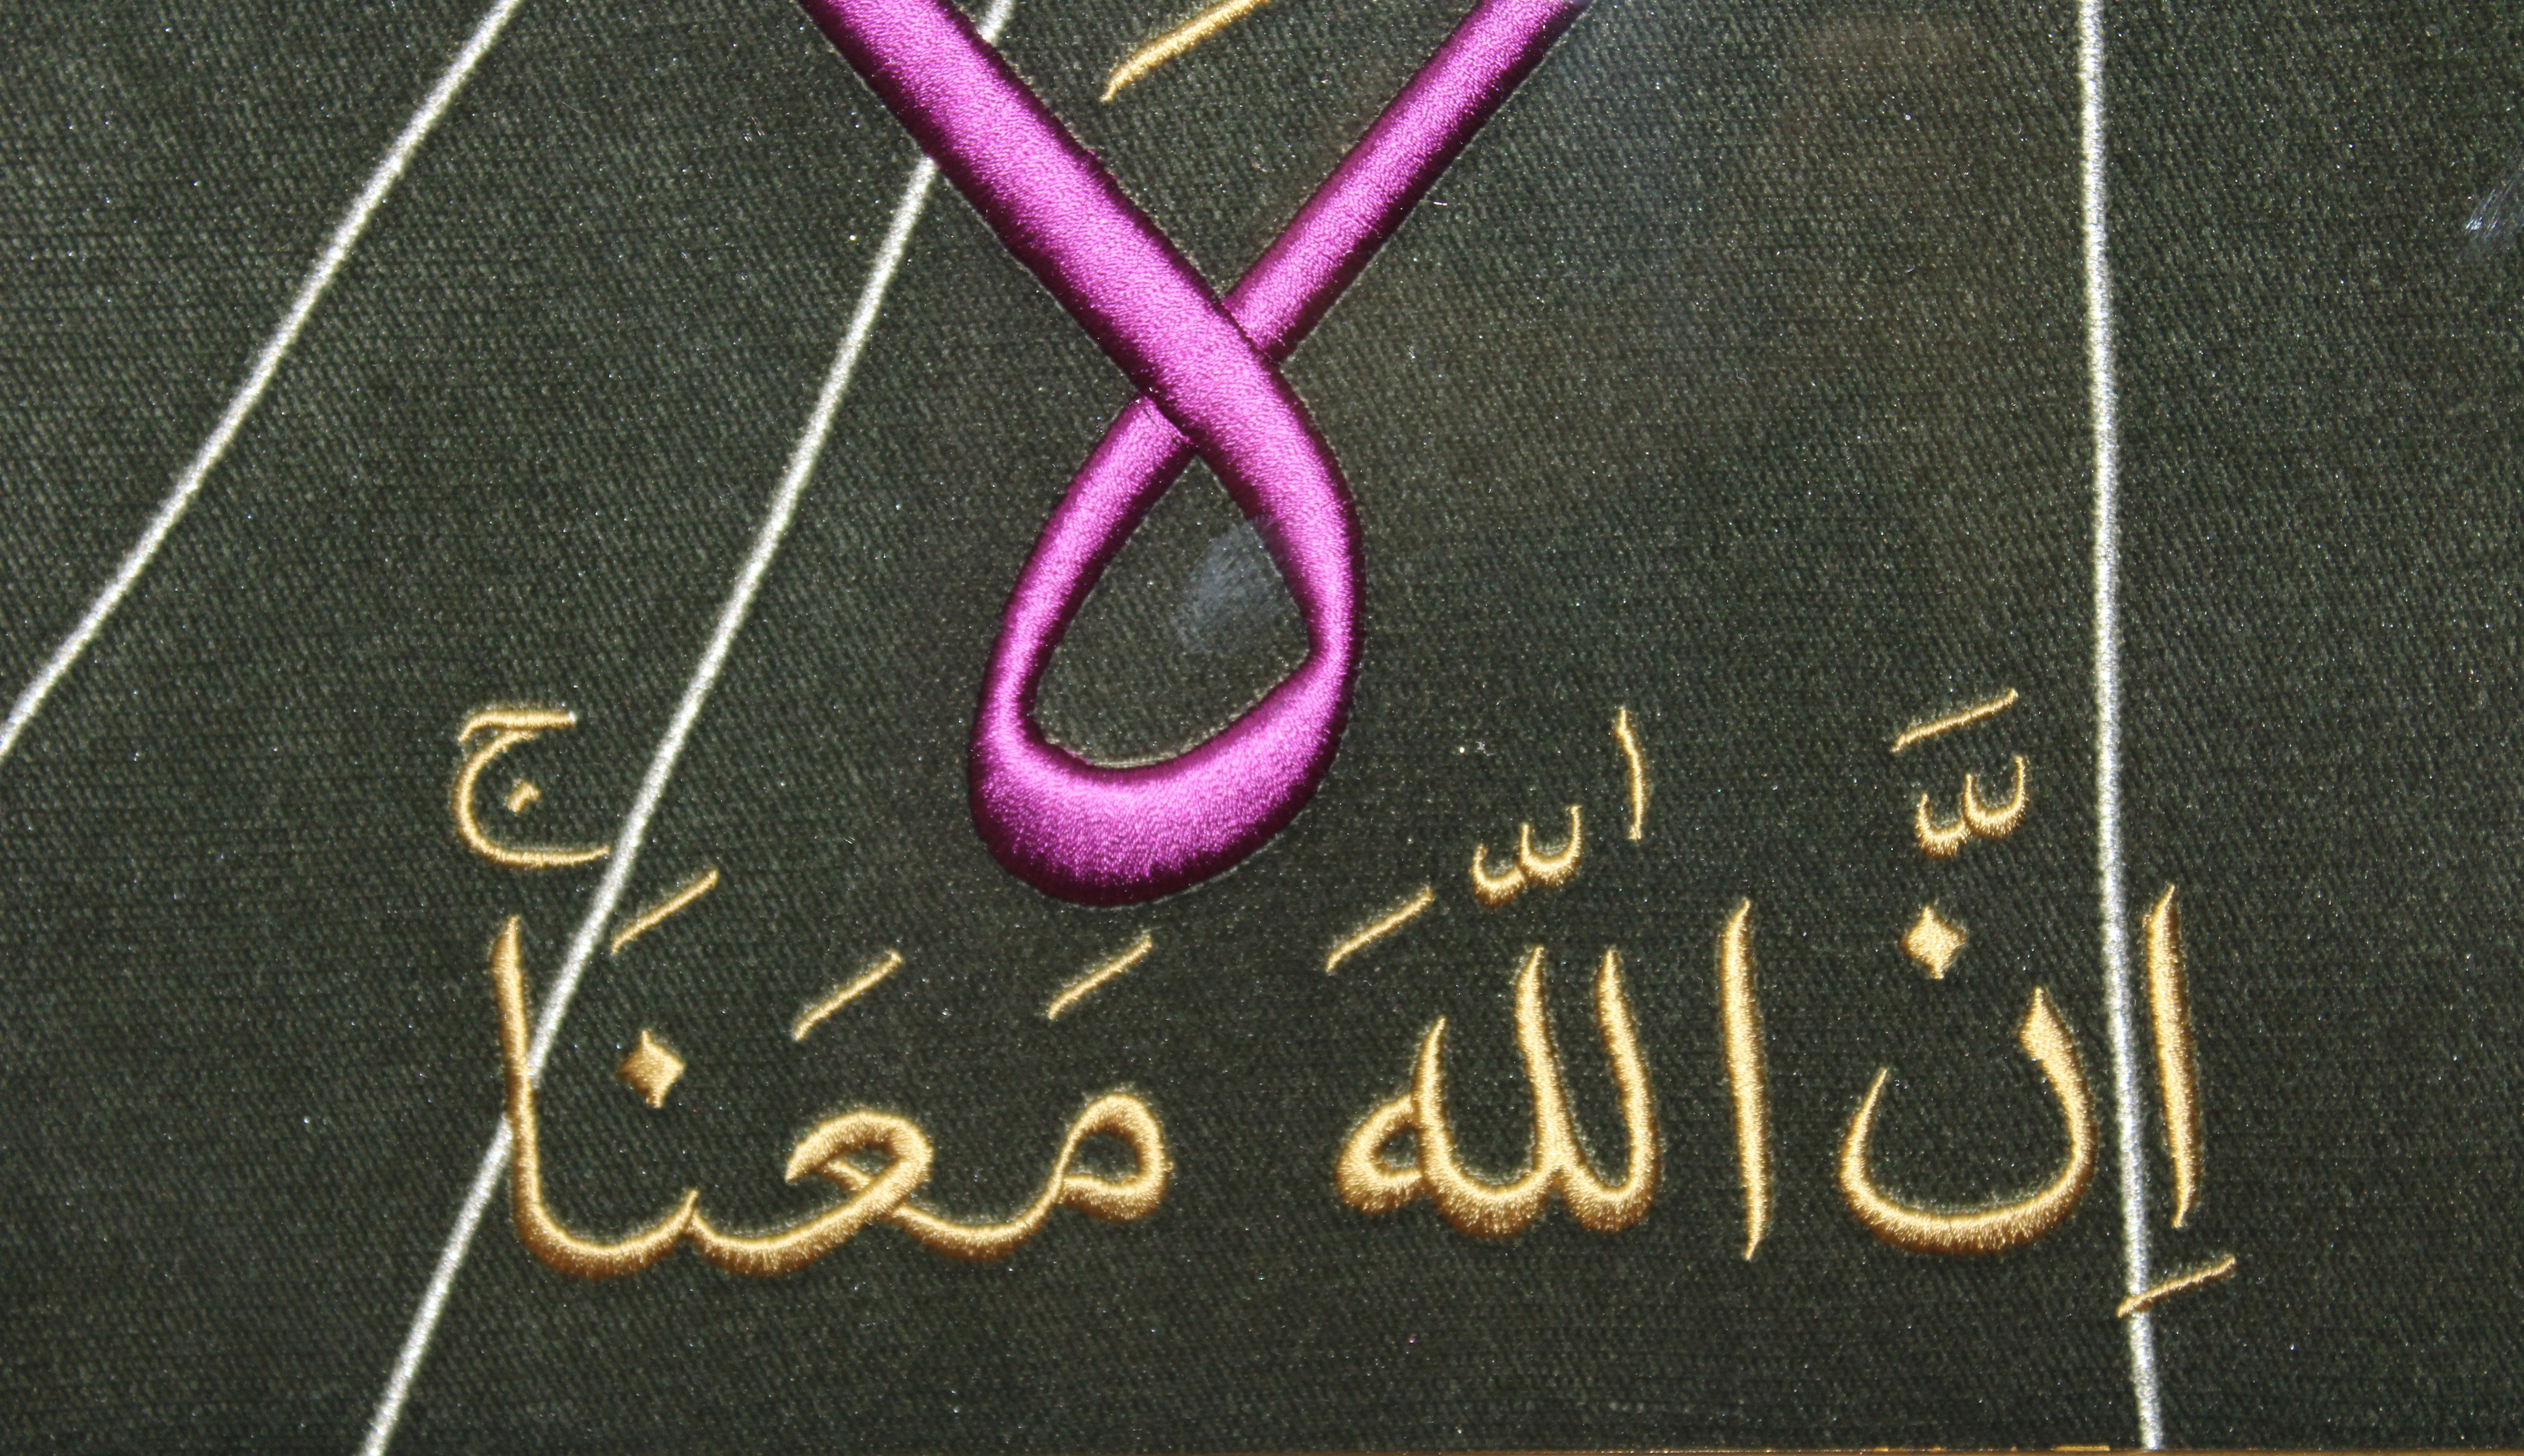 لا
اِنَّ اللّٰهَ مَعَنَا ۚ